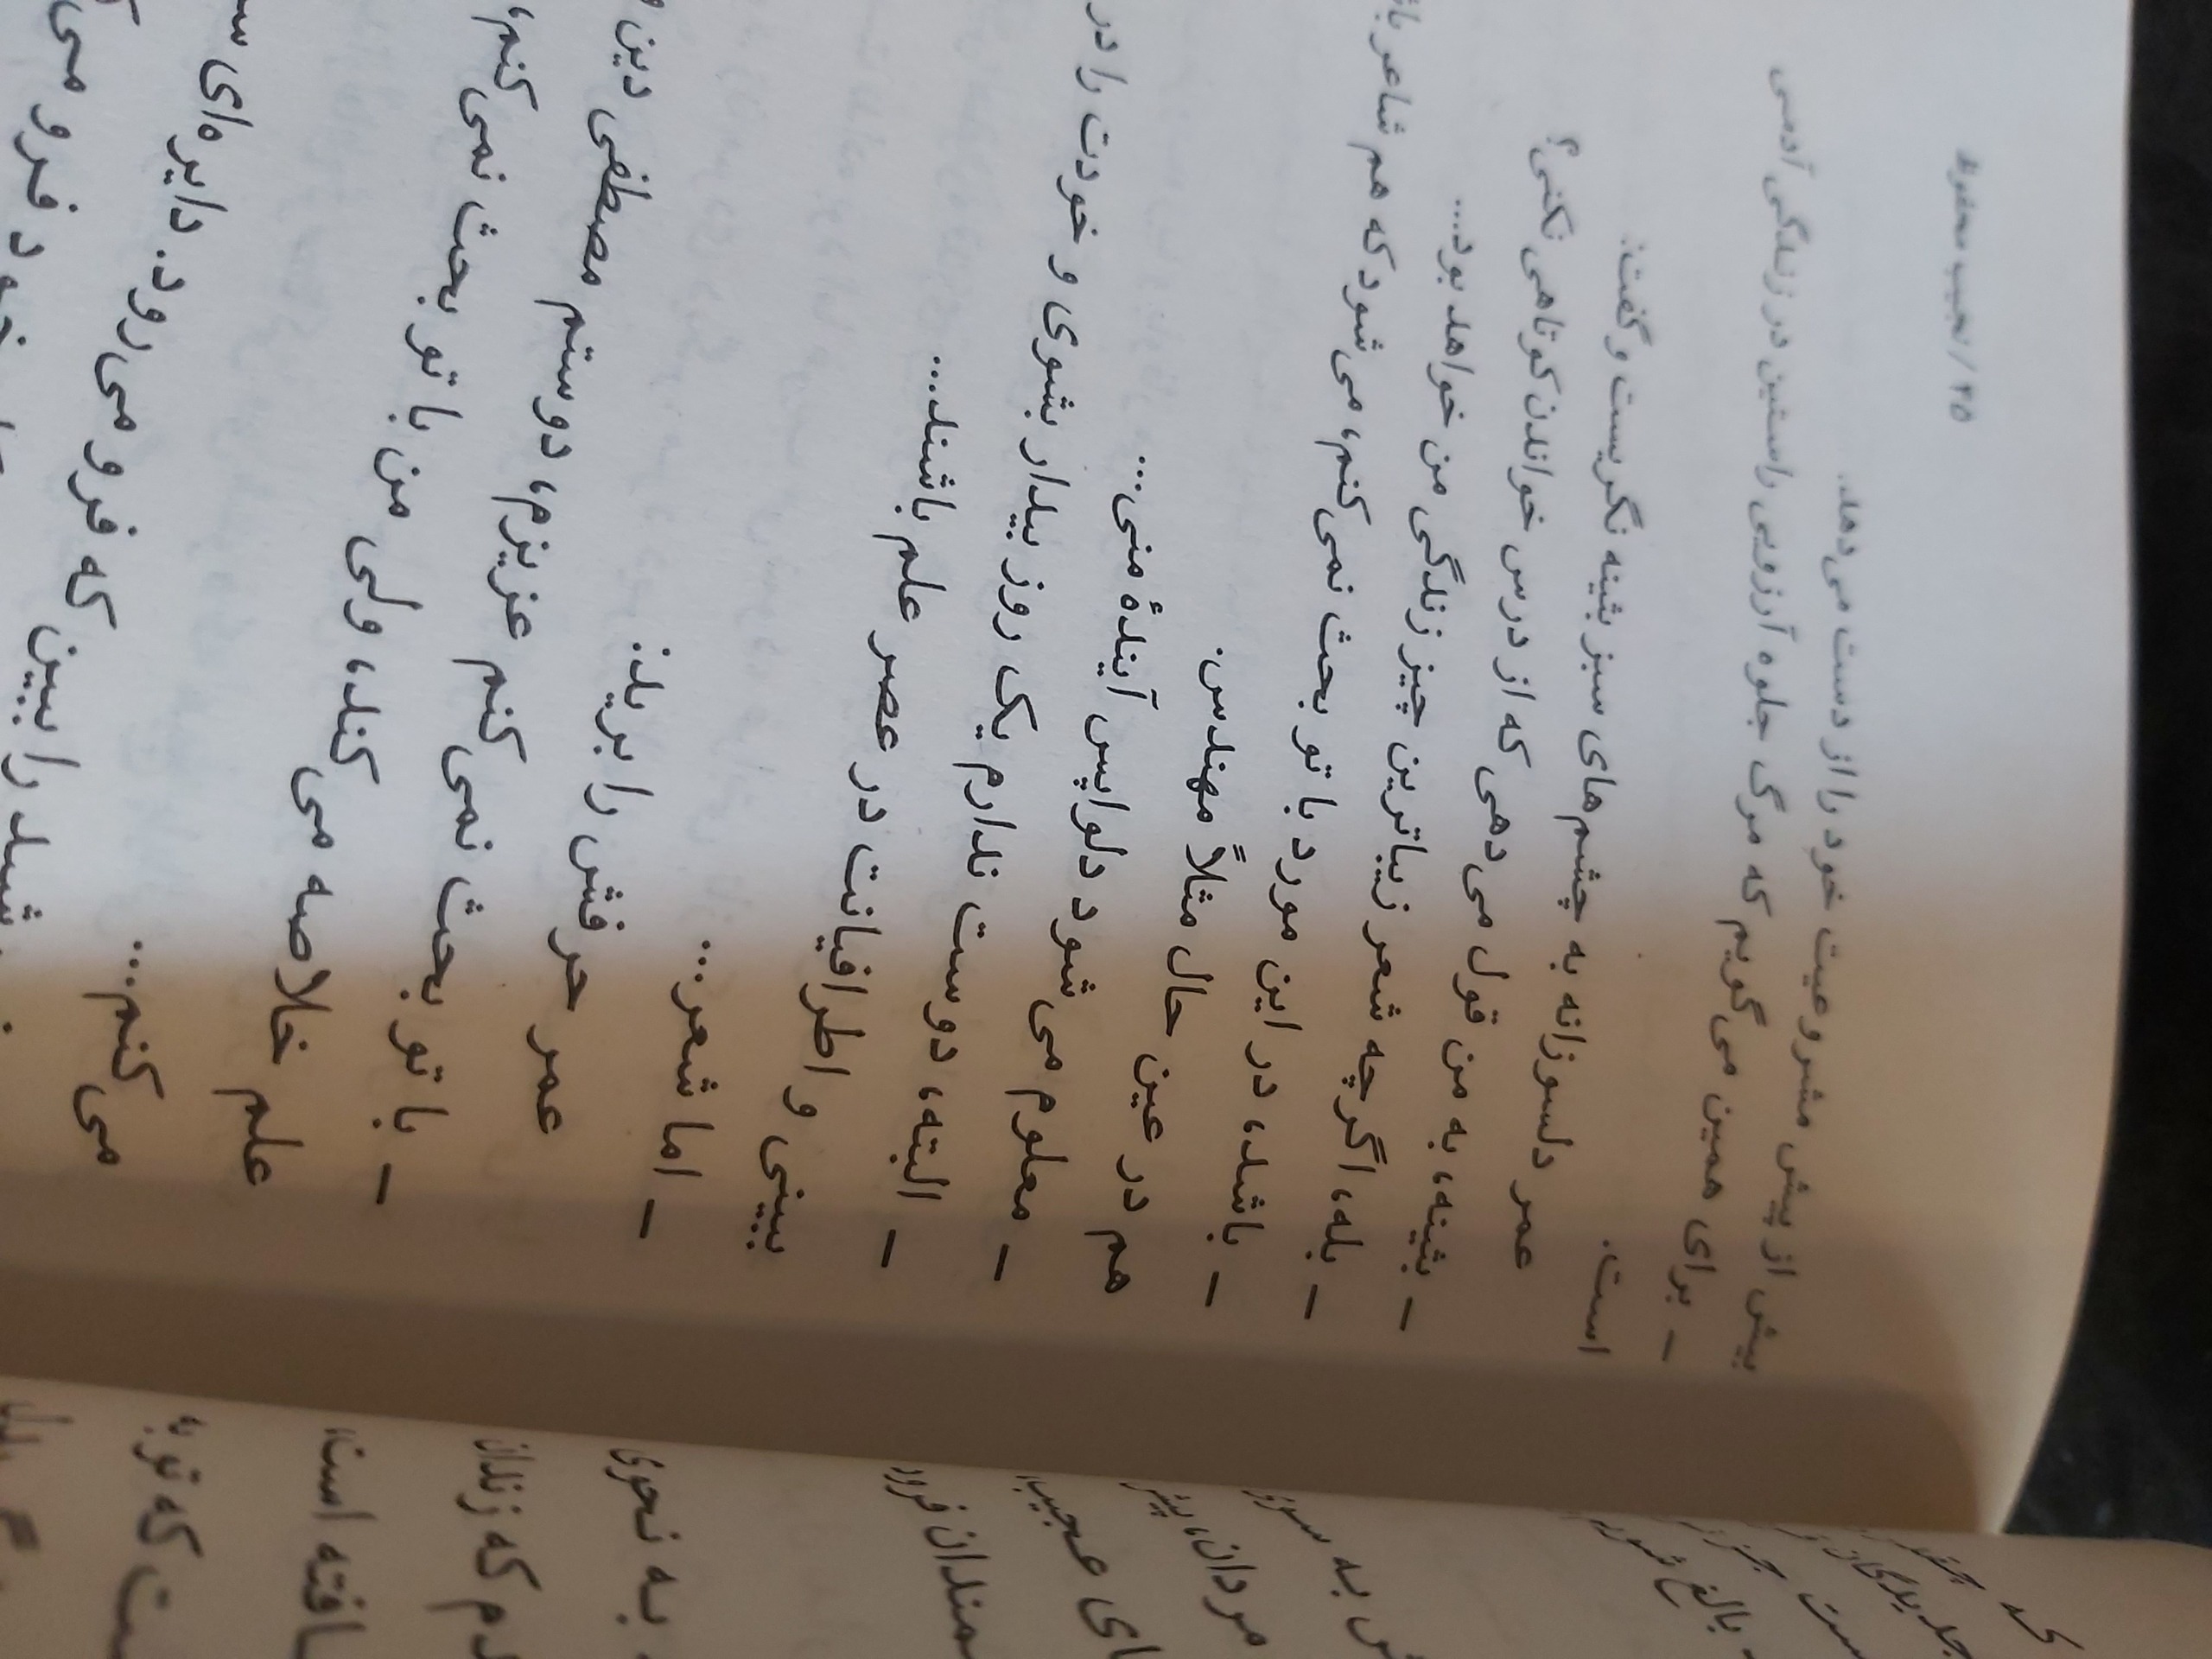 ۴۵ / نجیب محفوظ
بیش از پیش مشروعیت خود را از دست می‌دهد.
– برای همین می‌گویم که مرگ جلوه آرزویی راستین در زندگی آدمی
است.
عمر دلسوزانه به چشم‌های سبز بثینه نگریست و گفت:
– بثینه، به من قول می‌دهی که از درس خواندن کوتاهی نکنی؟
– بله، اگرچه شعر زیباترین چیز زندگی من خواهد بود...
– باشد، در این مورد با تو بحث نمی‌کنم، می‌شود که هم شاعر
هم در عین حال مثلاً مهندس.
– معلوم می‌شود دلواپس آیندهٔ منی...
– البته، دوست ندارم یک روز بیدار بشوی و خودت را در
ببینی و اطرافیانت در عصر علم باشند...
– اما شعر...
عمر حرفش را برید:
– با تو بحث نمی‌کنم عزیزم، دوستم مصطفی دین
علم خلاصه می‌کند، ولی من با تو بحث نمی‌کنم،
می‌کنم...
را ببین که فرو می‌رود. دایره‌ای
به نحوی
که
افته است،
که
مندان فرود
ای عجیب،
مردان،
به
بالغ